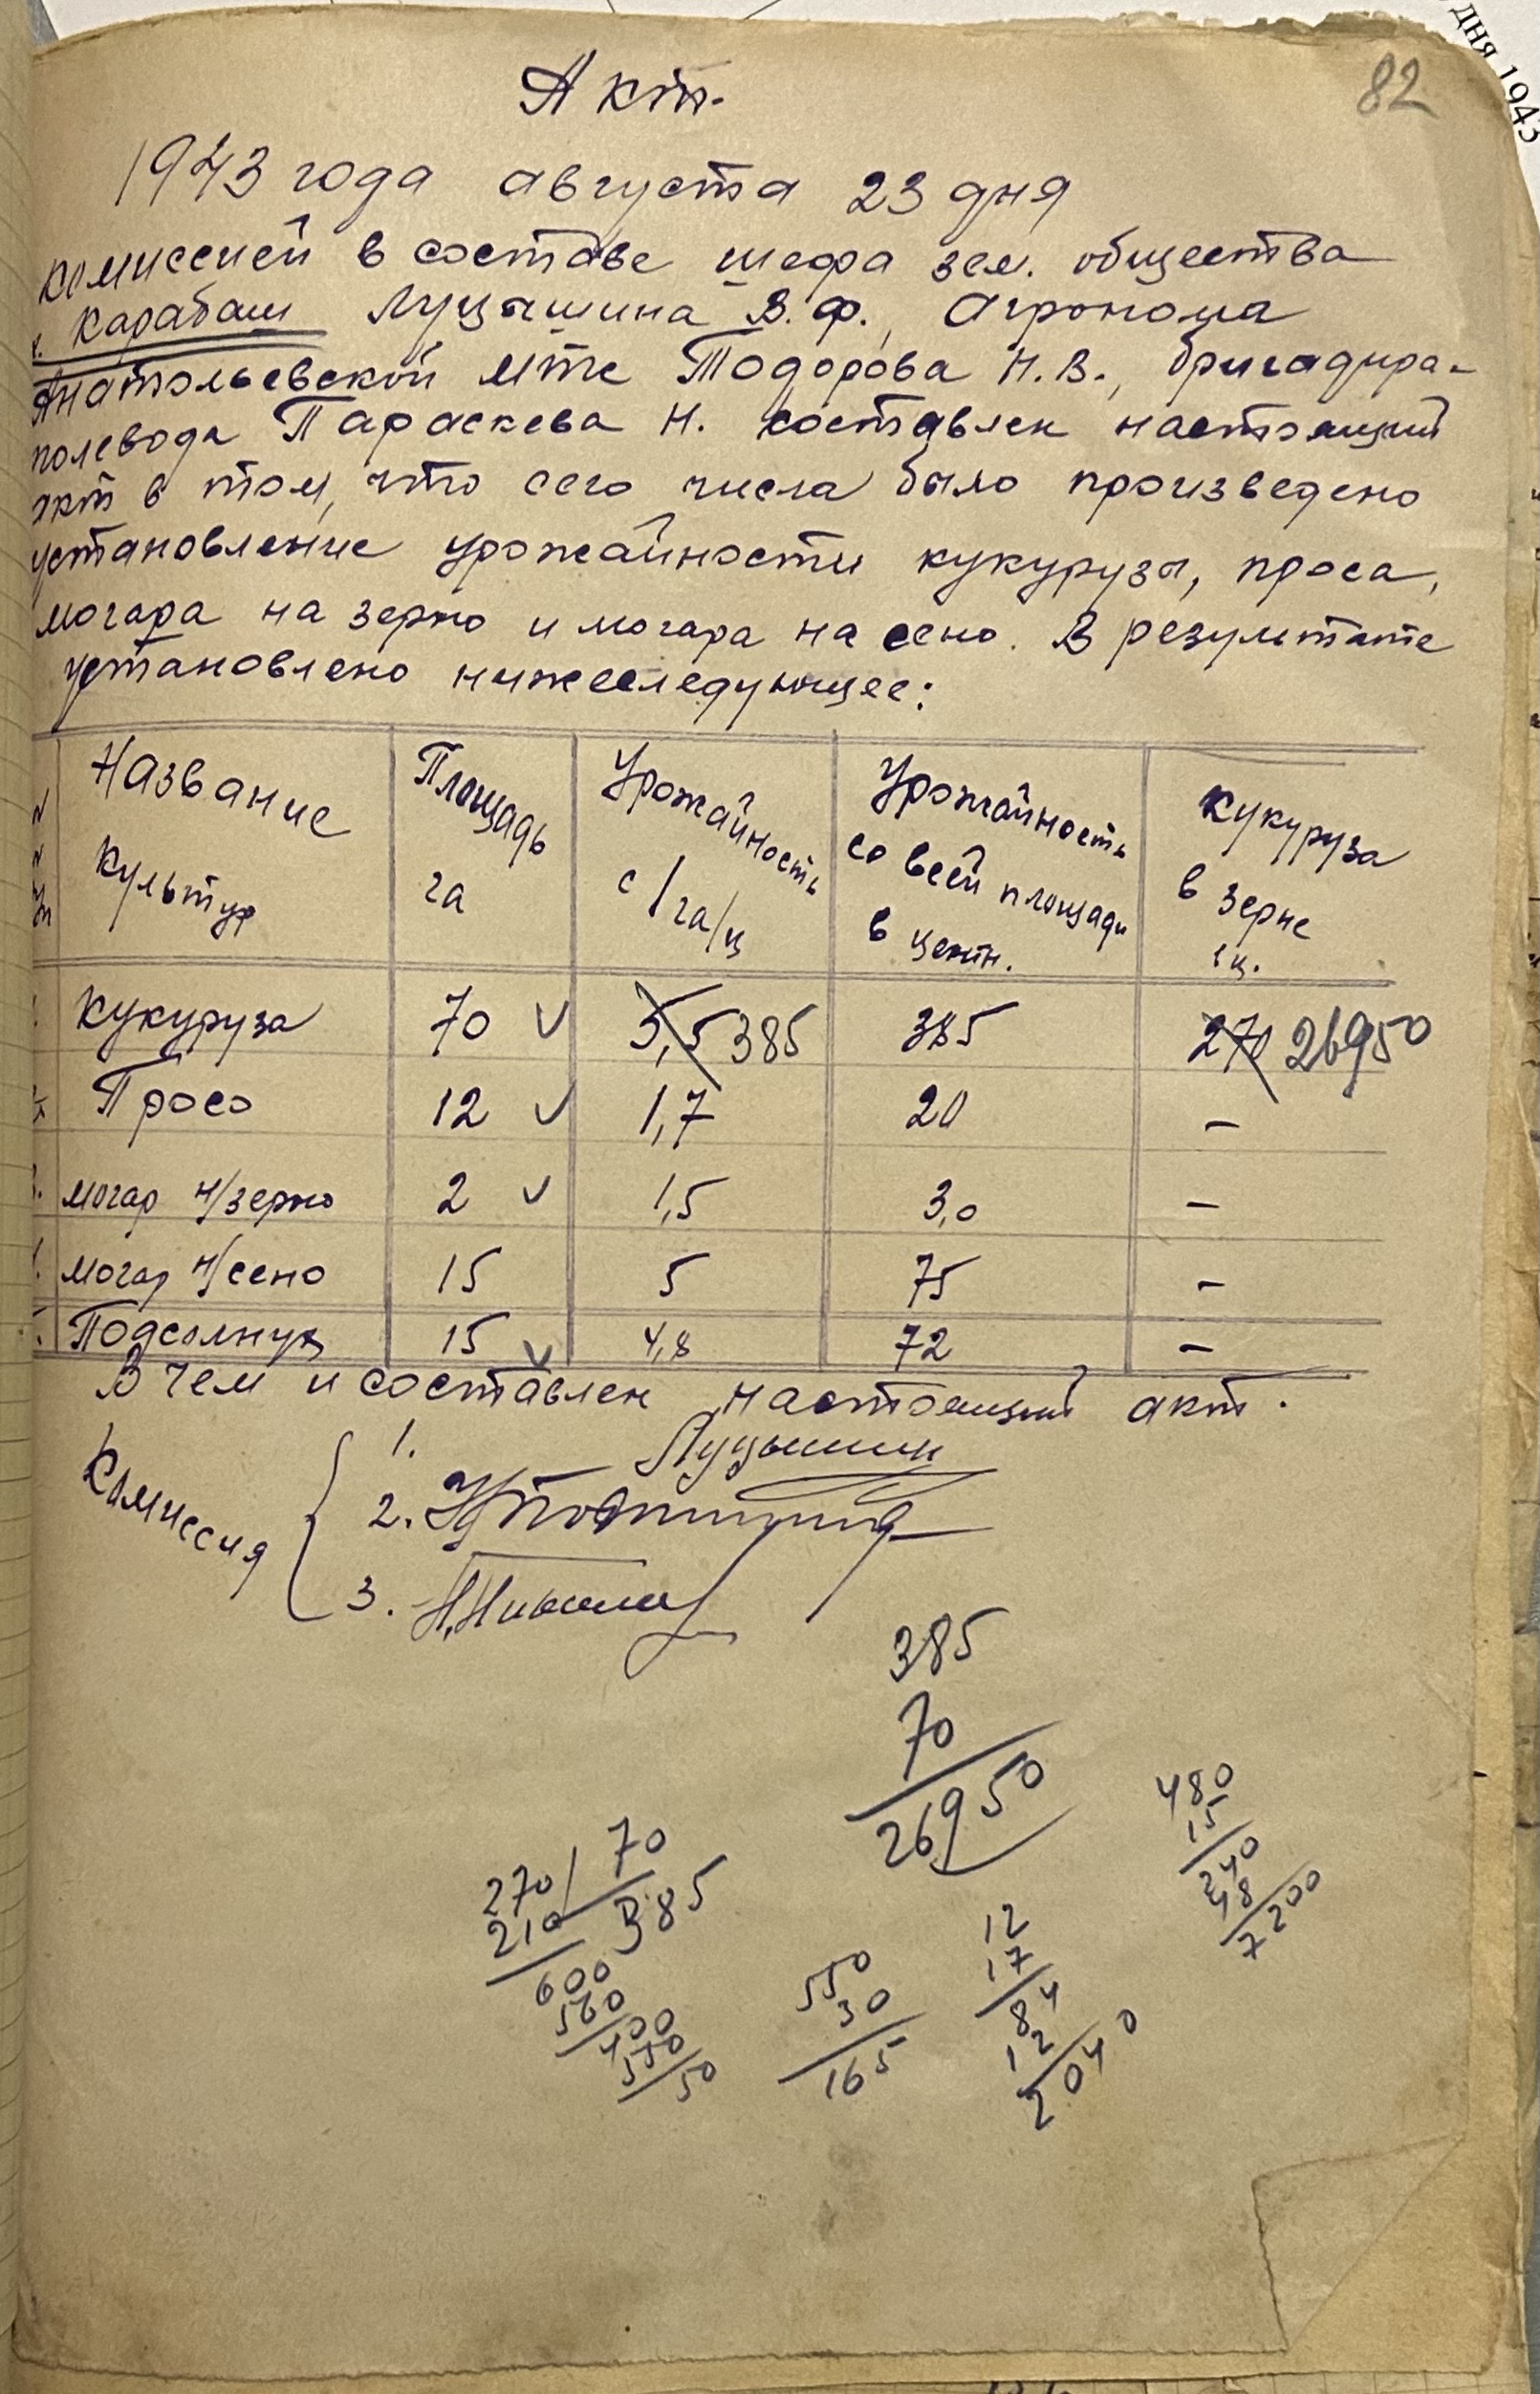 дня 1943
82
Акт.
1943 года августа 23 дня
комиссией в составе шефа зем. общества
с. Карабаш Луцышина В.Ф., Агронома
Анатольевской МТС Тодорова Н.В., бригадира-
полевода Параскева Н. составлен настоящий
акт в том, что сего числа было произведено
установление урожайности кукурузы, проса,
могара на зерно и могара на сено. В результате
установлено нижеследующее:
Название культур | Площадь га | Урожайность с/га/ц | Урожайность со всей площади в центн. | Кукуруза в зерне ц.
Кукуруза 70 ✓ 5,5 385 385 270 26950
Просо 12 ✓ 1,7 20 –
могар н/зерно 2 ✓ 1,5 3,0 –
могар н/сено 15 5 75 –
Подсолнух 15 ✓ 4,8 72 –
В чем и составлен настоящий акт.
Комиссия
1. Луцышин
2.
3.
385
70
26950
480
15
240
48
7200
270 70
210 385
600
560
400
350
50
550
30
165
12
17
84
12
2040